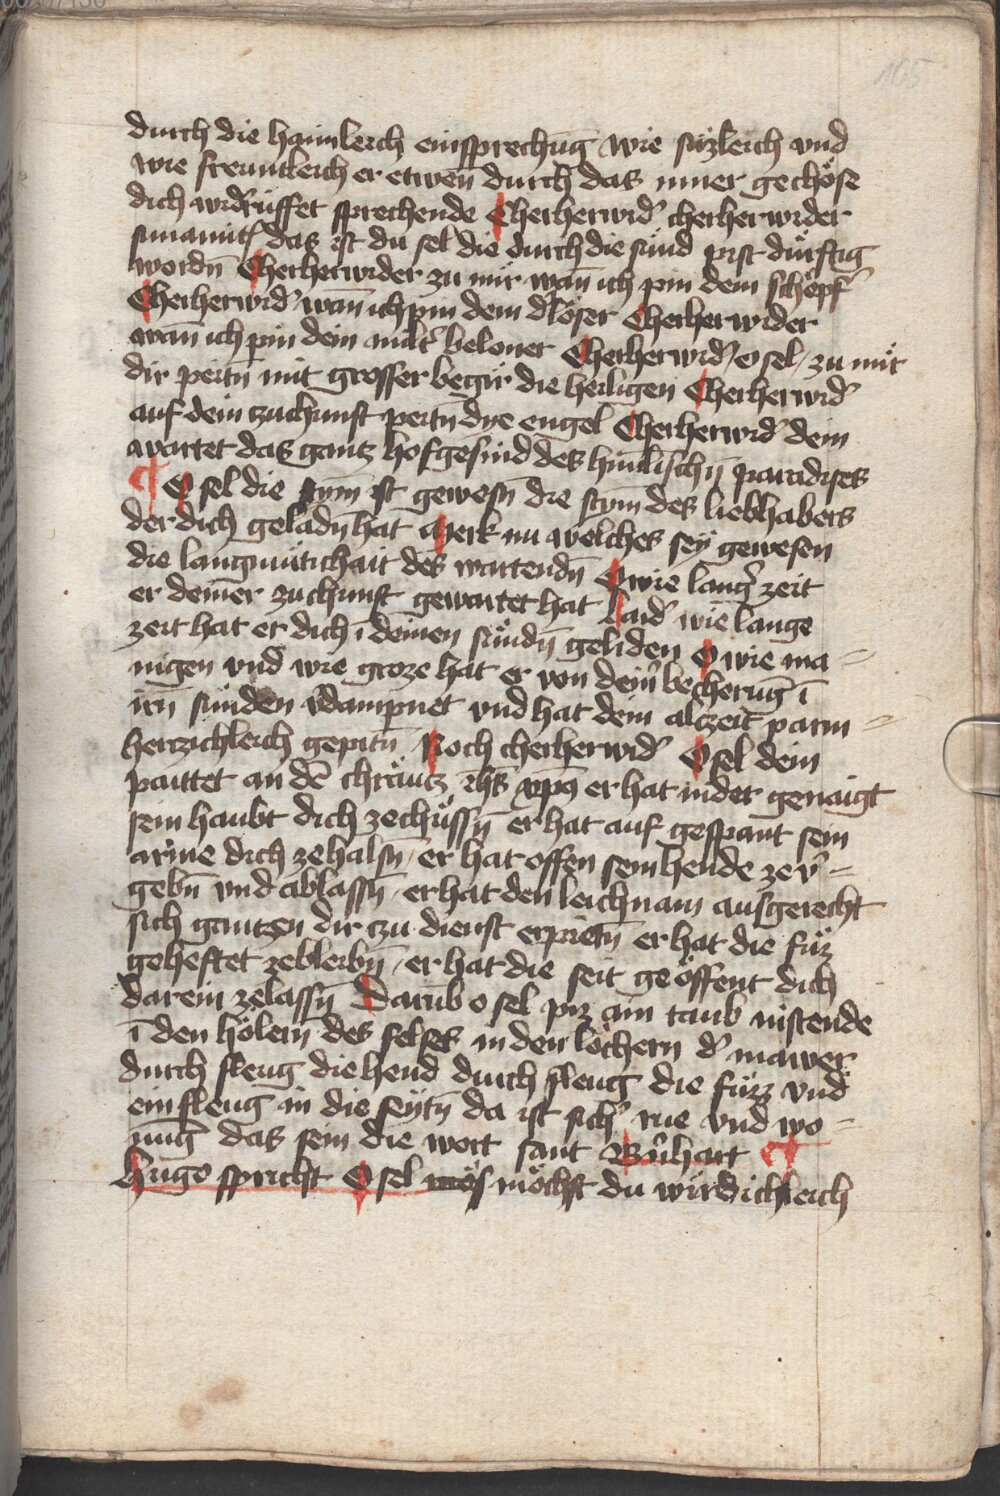 105
durch die haimleich einsprechūg wie süzleich vnd
wie freuntleich er etwen̄ durch das inner gechöse
dich widˀrüffet sprechende Cherherwidˀ cherherwider
sunamit͛ das ist du sel die durch die sünd pist dürftig
wordn̄ Cherherwider zu mir wan̄ ich pin dein schöpfˀ
Cherherwidˀ wan̄ ich pin dein dˀlöser Cherherwider
wan̄ ich pin dein miltˀ beloner Cherherwidˀ o sel / zu mir
dir peitn̄ mit grosser begir die heiligen Cherherwidˀ
auf dein zuchunft peitn̄ dye engel Cherherwidˀ dein
wartet das gantz hofgesind des himlischn̄ paradises
¶ O sel die stym̄ ist gewesn̄ die stym̄ des liebhabers
der dich geladn̄ hat Merk nu welches sey gewesen
die langmütichait des wartendn̄ O wie langˀ zeit
er deiner zuchunft gewartet hat Laidˀ wie lange
zeit hat er dich ī deinen sündn̄ geliden O wie ma =
nigen vnd wie groze hat er von deinˀ becherūg ī
irn̄ sünden vˀdampnet vnd hat dein alczeit parm =
herczichleich gepitn̄ Noch cherherwidˀ O sel dein
paittet an dē chräutz ih̄s xp̄s er hat nider genaigt
sein haubt dich zechüssn̄ er hat auf gespant sein
arme dich zehalsn̄ / er hat offen sein hende ze vˀ =
gebn̄ vnd ablassn̄ / er hat den leichnam ausgerecht
sich gantzen dir zu dienst erpietn̄ er hat die füz
geheftet zebleibn̄ / er hat die seit geöffent dich
darein zelassn̄ Darūb o sel piz ain taub nistende
ī den hölern̄ des felses in den löchern dˀ mawer
durch fleug die hend durch fleug die füzz vnd
ein fleug in die seytn̄ da ist sichˀ rue vnd wo =
nūg das sein die wort sant Bˀnhart ¶
Hugo spricht O sel möchst du wirdichleich